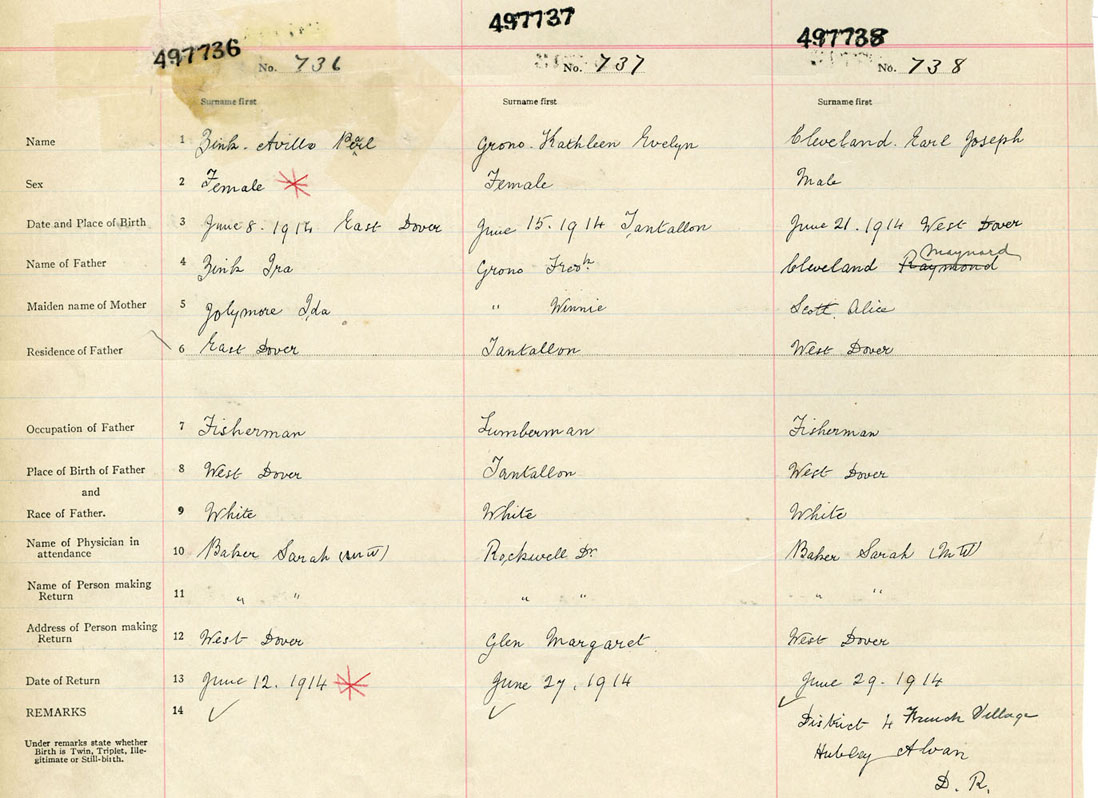 497736 497737 497738
No. 736 No. 737 No. 738
Surname first Surname first Surname first
Name 1 Zink. Avilla Perl Grono. Kathleen Evelyn Cleveland. Earl Joseph
Sex 2 Female Female Male
Date and Place of Birth 3 June 8. 1914 East Dover June 15. 1914 Tantallon June 21. 1914 West Dover
Maynard
Name of Father 4 Zink Ira Grono Fredk Cleveland Raymond
Maiden name of Mother 5 Jolymore Ida " Winnie Scott. Alice
Residence of Father 6 East Dover Tantallon West Dover
Occupation of Father 7 Fisherman Lumberman Fisherman
Place of Birth of Father 8 West Dover Tantallon West Dover
and
Race of Father. 9 White White White
Name of Physician in
attendance 10 Baker Sarah (MW) Rockwell Dr Baker Sarah (MW)
Name of Person making
Return 11 " " " " " "
Address of Person making
Return 12 West Dover Glen Margaret West Dover
Date of Return 13 June 12. 1914 June 27, 1914 June 29. 1914
REMARKS 14 ✓ ✓ ✓
District 4 French Village
Under remarks state whether
Birth is Twin, Triplet, Ille-
gitimate or Still-birth.
Hubley Alvan
D. R.